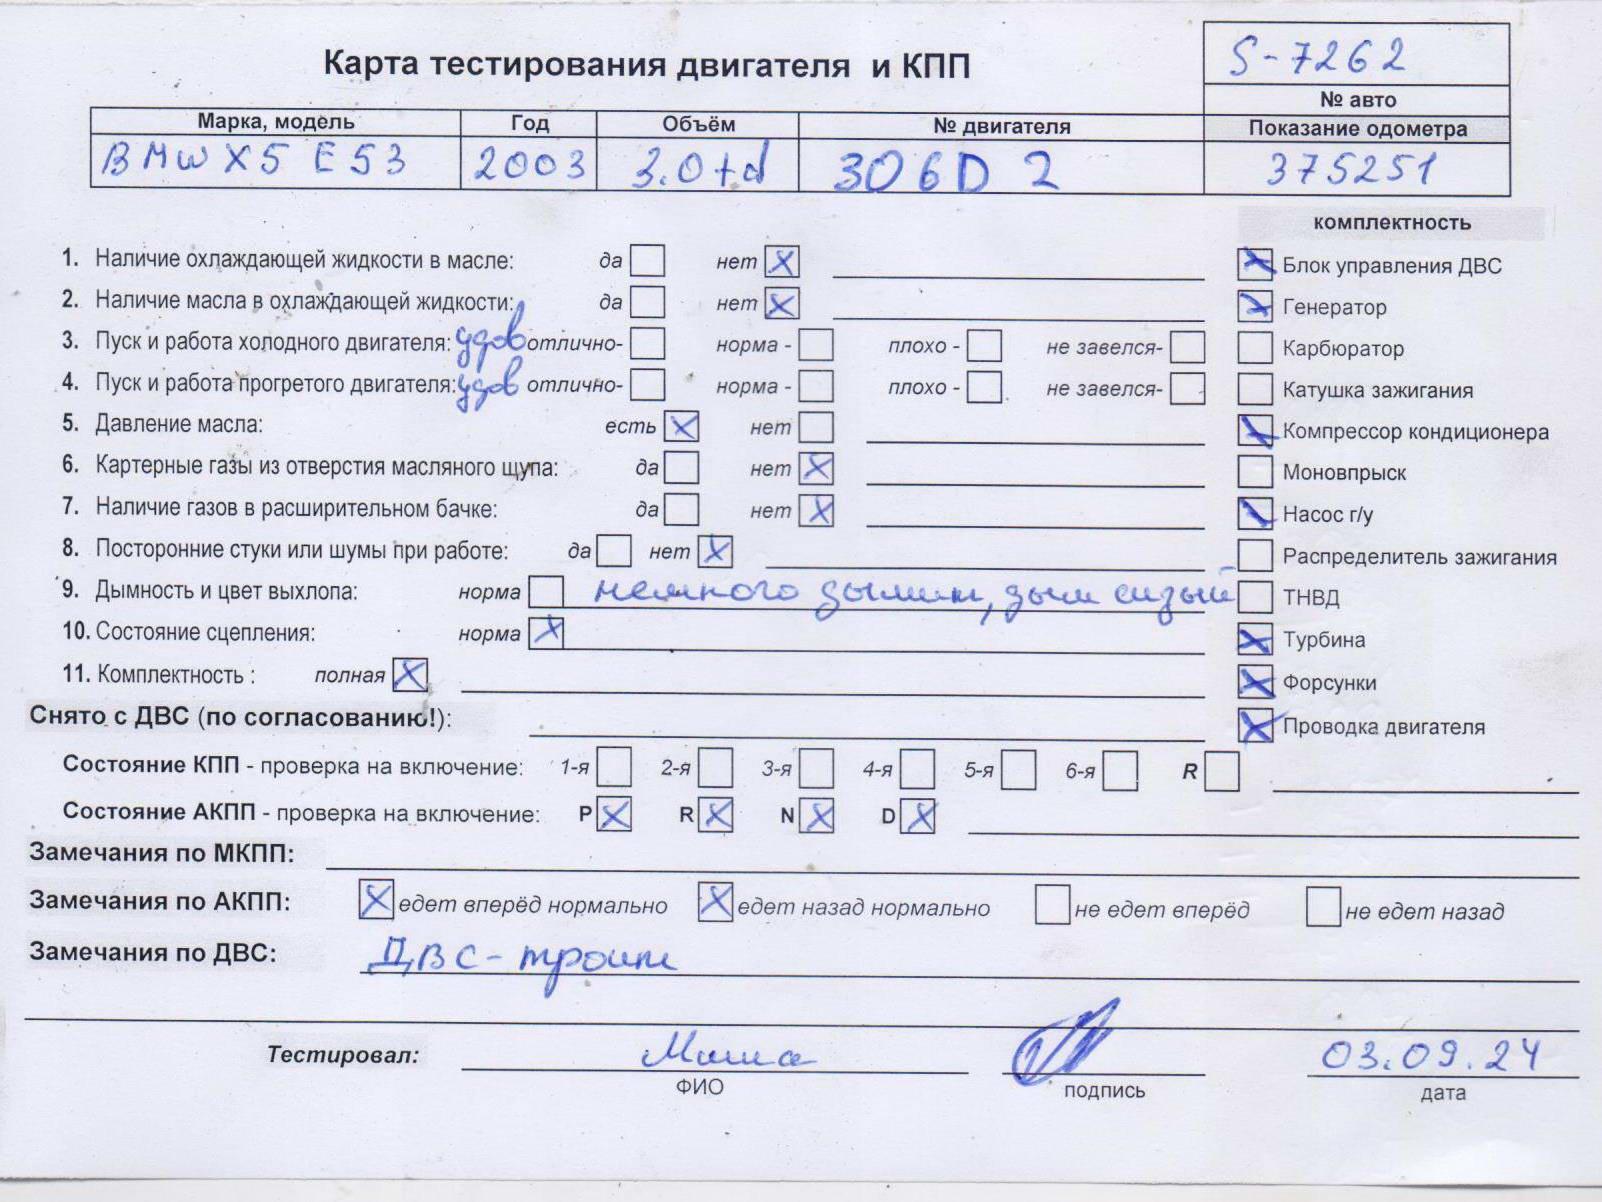 Карта тестирования двигателя и КПП
S-7262
№ авто
Марка, модель Год Объём № двигателя Показание одометра
BMW X5 E53 2003 3.0td 306D 2 375251
комплектность
1. Наличие охлаждающей жидкости в масле: да нет X
2. Наличие масла в охлаждающей жидкости: да нет X
3. Пуск и работа холодного двигателя: удов отлично- норма - плохо - не завелся-
4. Пуск и работа прогретого двигателя: удов отлично- норма - плохо - не завелся-
5. Давление масла: есть X нет
6. Картерные газы из отверстия масляного щупа: да нет X
7. Наличие газов в расширительном бачке: да нет X
8. Посторонние стуки или шумы при работе: да нет X
9. Дымность и цвет выхлопа: норма немного дымит, дым сизый
10. Состояние сцепления: норма X
11. Комплектность : полная X
X Блок управления ДВС
X Генератор
Карбюратор
Катушка зажигания
X Компрессор кондиционера
Моновпрыск
X Насос г/у
Распределитель зажигания
ТНВД
X Турбина
X Форсунки
X Проводка двигателя
Снято с ДВС (по согласованию!):
Состояние КПП - проверка на включение: 1-я 2-я 3-я 4-я 5-я 6-я R
Состояние АКПП - проверка на включение: P X R X N X D X
Замечания по МКПП:
Замечания по АКПП: X едет вперёд нормально X едет назад нормально не едет вперёд не едет назад
Замечания по ДВС: ДВС - троит
Тестировал: Миша 03.09.24
ФИО подпись дата